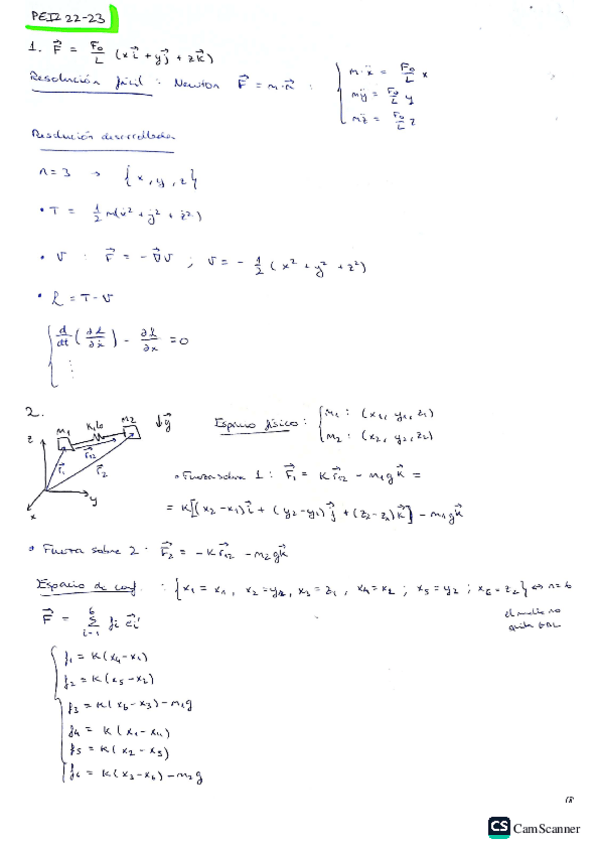 PEI2 22-23
1. F⃗ = F₀/L (xi⃗ + yj⃗ + zk⃗)
Resolución fácil : Newton F⃗ = m·R⃗̈ : { m·ẍ = F₀/L x
mÿ = F₀/L y
mz̈ = F₀/L z
Resolución desarrollada
n=3 → {x, y, z}
• T = 1/2 m(ẋ² + ẏ² + ż²)
• V : F⃗ = -∇⃗V ; V = - 1/2 (x² + y² + z²)
• L = T - V
{ d/dt (∂L/∂ẋ) - ∂L/∂x = 0
⋮
2.
z M₁ K,l₀ M₂ ↓g⃗
r⃗₁ r⃗₁₂ r⃗₂
x y
Espacio físico : { m₁ : (x₁, y₁, z₁)
m₂ : (x₂, y₂, z₂)
• Fuerza sobre 1 : F⃗₁ = K r⃗₁₂ - m₁gk⃗ =
= K[(x₂-x₁)i⃗ + (y₂-y₁)j⃗ + (z₂-z₁)k⃗] - m₁gk⃗
• Fuerza sobre 2 : F⃗₂ = -K r⃗₁₂ - m₂gk⃗
Espacio de conf. : {x₁ = x₁, x₂ = y₁, x₃ = z₁, x₄ = x₂ ; x₅ = y₂ ; x₆ = z₂} ⇔ n=6
el muelle no
quita GDL
F⃗ = Σ⁶ᵢ₌₁ fᵢ e⃗ᵢ
{ f₁ = K(x₄-x₁)
f₂ = K(x₅-x₂)
f₃ = K(x₆-x₃) - m₁g
f₄ = K(x₁-x₄)
f₅ = K(x₂-x₅)
f₆ = K(x₃-x₆) - m₂g
CS CamScanner